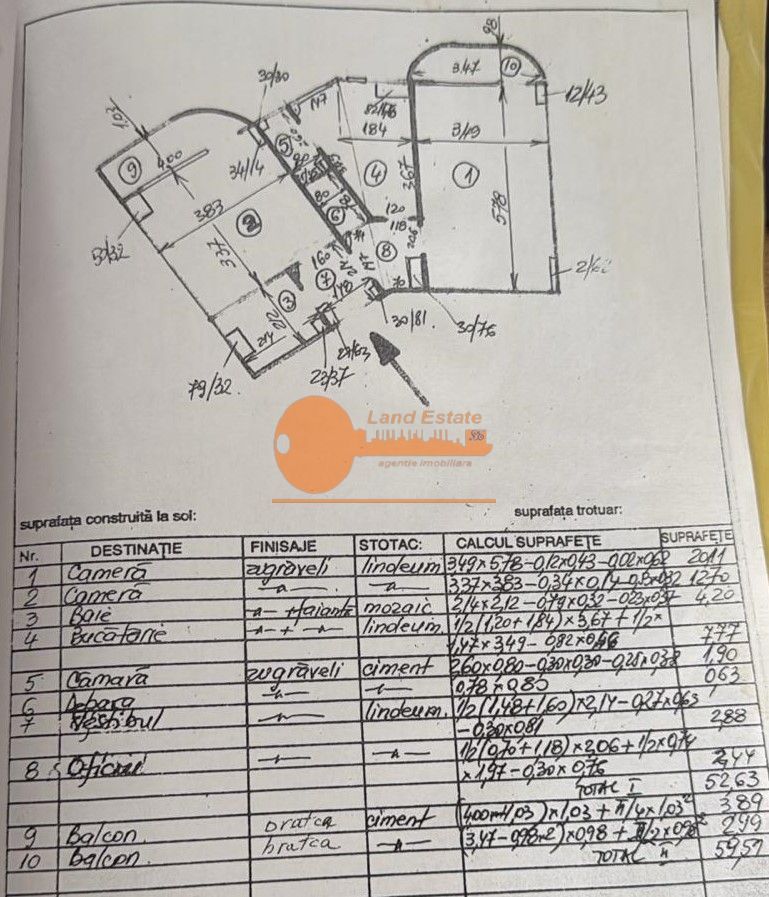 98
30/30
3.47
10
12/43
147
82/46
1.03
9
400
5
184
349
34/14
4
367
1
578
80
383
2
6
120
118
50/32
337
8
206
160
7
3
212
70
2/62
214
30/81.
30/76
27/63
23/37
79/32.
Land Estate
agentie imobiliara
suprafaţa construită la sol:
suprafaţa trotuar:
Nr. DESTINAŢIE FINISAJE STOTAC: CALCUL SUPRAFEŢE SUPRAFEŢE
1 Cameră zugrăveli linoleum 349×578-0,12×0,43-0,02×0,62 2011
2 Cameră —〃— —〃— 3,37×3,83-0,34×0,14-0,5×0,32 1270
3 Baie —〃— +faianta mozaic 2,14×2,12-0,79×0,32-0,23×0,37 4,20
4 Bucătarie —〃—+—〃— linoleum 1/2(1,20+1,84)×3,67+1/2×
1,47×3,49-0,82×0,46 777
5 Cămară zugrăveli ciment 2,60×0,80-0,30×0,30-0,28×0,38 1,90
6 Debara —〃— —〃— 0,78×0,80 0,63
7 Vestibul —〃— linoleum. 1/2(1,48+1,60)×2,14-0,27×0,63
-0,30×0,81 2,88
8 Oficiu —〃— —〃— 1/2(0,70+1,18)×2,06+1/2×0,74
×1,97-0,30×0,76 2,44
TOTAL I 52,63
9 Balcon. ciment (4,00-1,03)×1,03+π/4×1,03² 3,89
10 balcon. —〃— (3,47-0,98×2)×0,98+π/2×0,98² 2,99
TOTAL II 59,51